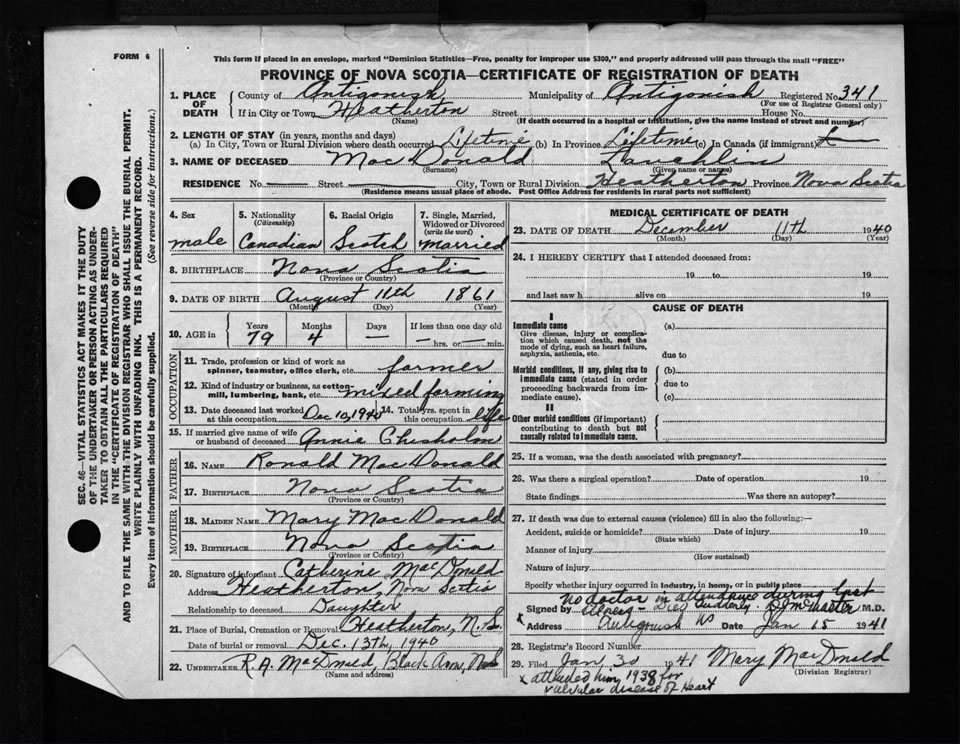 FORM 6
This form if placed in an envelope, marked "Dominion Statistics—Free, penalty for improper use $300," and properly addressed will pass through the mail "FREE"
PROVINCE OF NOVA SCOTIA—CERTIFICATE OF REGISTRATION OF DEATH
1. PLACE OF DEATH
County of Antigonish Municipality of Antigonish Registered No. 341
(For use of Registrar General only)
If in City or Town Heatherton Street House No.
(Name) (If death occurred in a hospital or institution, give the name instead of street and number)
2. LENGTH OF STAY (in years, months and days)
(a) In City, Town or Rural Division where death occurred Lifetime (b) In Province Lifetime (c) In Canada (if immigrant)
3. NAME OF DECEASED MacDonald Lauchlin
(Surname) (Given name or names)
RESIDENCE No. — Street — City, Town or Rural Division Heatherton Province Nova Scotia
(Residence means usual place of abode. Post Office Address for residents in rural parts not sufficient)
4. Sex
male
5. Nationality
(Citizenship)
Canadian
6. Racial Origin
Scotch
7. Single, Married, Widowed or Divorced
(write the word)
married
8. BIRTHPLACE Nova Scotia
(Province or Country)
9. DATE OF BIRTH August 11th 1861
(Month) (Day) (Year)
10. AGE in
Years Months Days If less than one day old
79 4 — — hrs. or — min.
OCCUPATION
11. Trade, profession or kind of work as
spinner, teamster, office clerk, etc. farmer
12. Kind of industry or business, as cotton-
mill, lumbering, bank, etc. mixed farming
13. Date deceased last worked Dec 10, 1940 14. Total yrs. spent in
at this occupation this occupation life
15. If married give name of wife
or husband of deceased Annie Chisholm
FATHER
16. NAME Ronald MacDonald
17. BIRTHPLACE Nova Scotia
(Province or Country)
MOTHER
18. MAIDEN NAME Mary MacDonald
19. BIRTHPLACE Nova Scotia
(Province or Country)
20. Signature of informant Catherine MacDonald
Address Heatherton, Nova Scotia
Relationship to deceased Daughter
21. Place of Burial, Cremation or Removal Heatherton, N.S.
Date of burial or removal Dec. 13th, 1940
22. UNDERTAKER R.A. MacDonald, Black Avon, N.S.
(Name and address)
MEDICAL CERTIFICATE OF DEATH
23. DATE OF DEATH December 11th 1940
(Month) (Day) (Year)
24. I HEREBY CERTIFY that I attended deceased from:
19 to 19
and last saw h alive on 19
CAUSE OF DEATH
I
Immediate cause
Give disease, injury or complica-
tion which caused death, not the
mode of dying, such as heart failure,
asphyxia, asthenia, etc.
(a)
due to
Morbid conditions, if any, giving rise to
immediate cause (stated in order
proceeding backwards from im-
mediate cause).
(b)
due to
(c)
II
Other morbid conditions (if important)
contributing to death but not
causally related to immediate cause.
25. If a woman, was the death associated with pregnancy?
26. Was there a surgical operation? Date of operation 19
State findings Was there an autopsy?
27. If death was due to external causes (violence) fill in also the following:—
Accident, suicide or homicide? Date of injury 19
(State which)
Manner of injury
(How sustained)
Nature of injury
Specify whether injury occurred in industry, in home, or in public place
No doctor in attendance during last
Signed by illness - Died Suddenly - M.D.
x Address Antigonish NS Date Jan 15 1941
28. Registrar's Record Number
29. Filed Jan 30 1941 Mary MacDonald
(Division Registrar)
x attended him 1938 for
valvular disease of Heart
SEC. 46—VITAL STATISTICS ACT MAKES IT THE DUTY
OF THE UNDERTAKER OR PERSON ACTING AS UNDER-
TAKER TO OBTAIN ALL THE PARTICULARS REQUIRED
IN THE "CERTIFICATE OF REGISTRATION OF DEATH"
AND TO FILE THE SAME WITH THE DIVISION REGISTRAR WHO SHALL ISSUE THE BURIAL PERMIT.
WRITE PLAINLY WITH UNFADING INK. THIS IS A PERMANENT RECORD.
Every item of information should be carefully supplied. (See reverse side for instructions.)